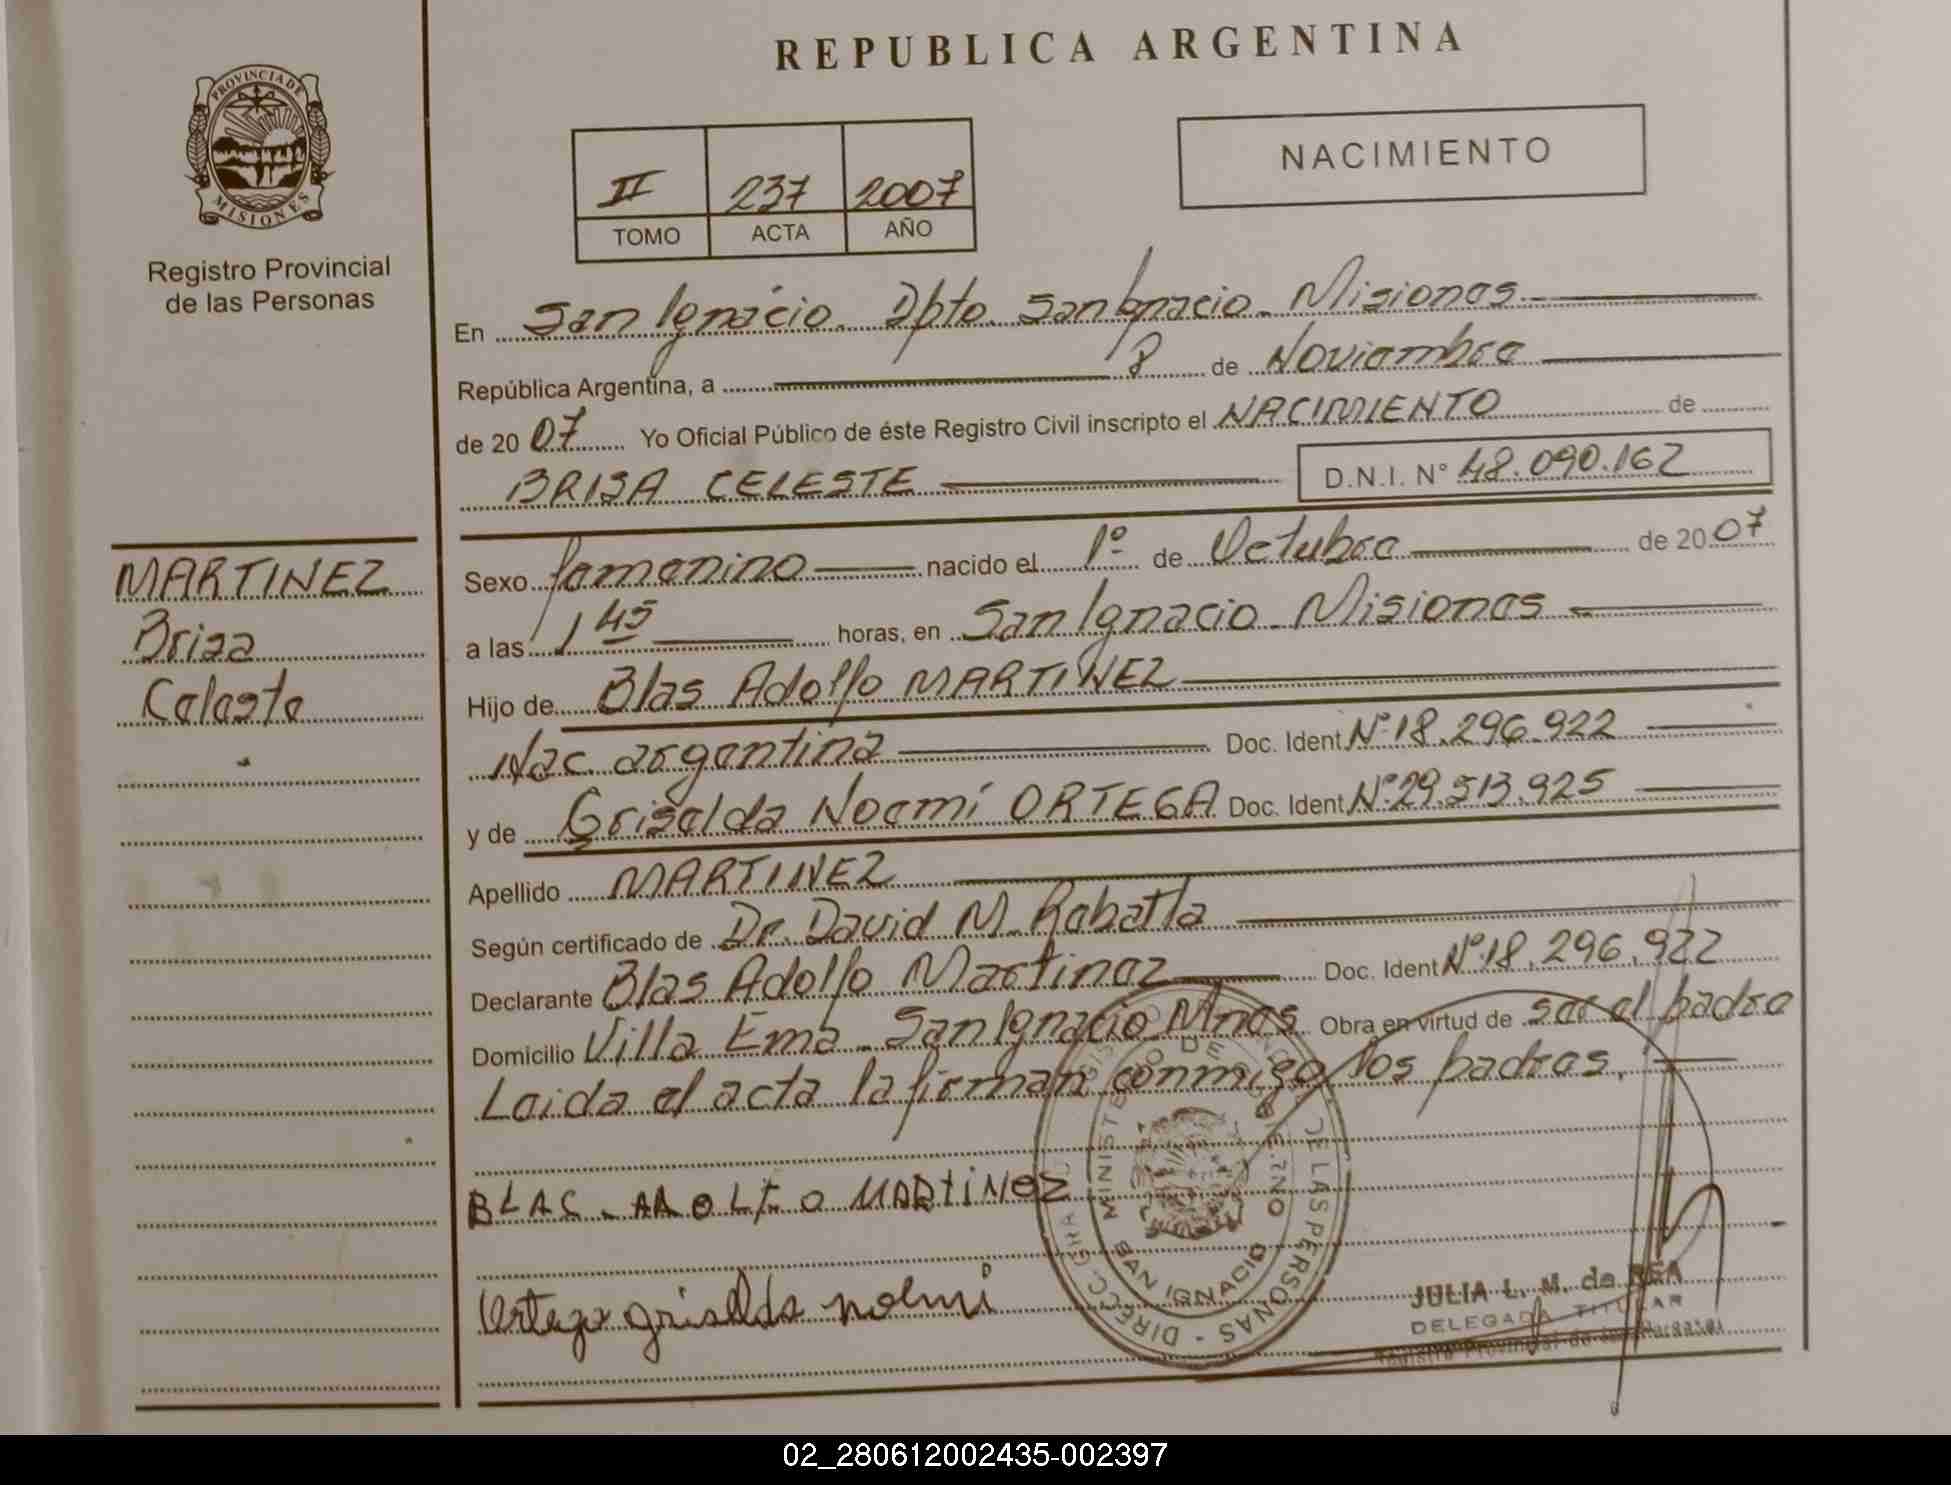 REPUBLICA ARGENTINA
PROVINCIA DE
MISIONES
Registro Provincial
de las Personas
II 237 2007
TOMO ACTA AÑO
NACIMIENTO
En San Ignacio. Dpto. San Ignacio. Misiones
República Argentina, a 8 de Noviembre
de 20 07 Yo Oficial Público de éste Registro Civil inscripto el NACIMIENTO de
BRISA CELESTE D.N.I. N° 48.090.162
MARTINEZ
Brisa
Celeste
Sexo femenino nacido el 1º de Octubre de 20 07
a las 1 45 horas, en San Ignacio. Misiones
Hijo de Blas Adolfo MARTINEZ
Nac. argentina Doc. Ident Nº 18.296.922
y de Griselda Noemí ORTEGA Doc. Ident Nº 29.513.925
Apellido MARTINEZ
Según certificado de Dr. David M. Rabatla
Declarante Blas Adolfo Martinez Doc. Ident Nº 18.296.922
Domicilio Villa Ema. San Ignacio Mnes Obra en virtud de ser el padre
Leida el acta la firman conmigo los padres.
BLAC. AAOLFO MARTiNEZ
Ortega griselda noemi
MINISTERIO DE GOBIERNO
SAN IGNACIO
DE LAS PERSONAS - DIRECC. GRAL
JULIA L. M. de REA
DELEGADA TITULAR
Registro Provincial de las Personas
02_280612002435-002397